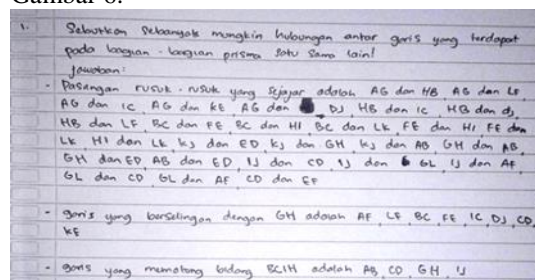 Gambar 6.
1. Sebutkan sebanyak mungkin hubungan antar garis yang terdapat
pada bagian - bagian prisma satu sama lain!
Jawaban:
- Pasangan rusuk - rusuk yang sejajar adalah AG dan HB, AG dan LF,
AG dan IC, AG dan KE, AG dan DJ, HB dan IC, HB dan dj,
HB dan LF, BC dan FE, BC dan HI, BC dan LK, FE dan HI, FE dan
LK, HI dan LK, KJ dan ED, KJ dan GH, KJ dan AB, GH dan AB,
GH dan ED, AB dan ED, IJ dan CD, IJ dan GL, IJ dan AF,
GL dan CD, GL dan AF, CD dan EF
- garis yang bersilangan dengan GH adalah AF, LF, BC, FE, IC, DJ, CD,
KE
- garis yang memotong bidang BCIH adalah AB, CD, GH, IJ